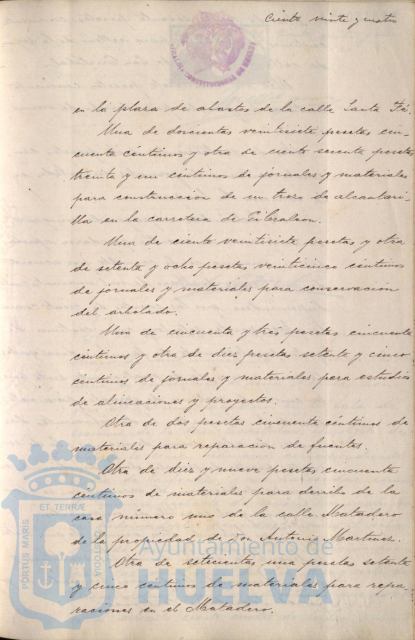 Ciento veinte y cuatro
en la plaza de abastos de la calle Santa Fé.
Una de doscientas veintisiete pesetas cin-
cuenta céntimos y otra de ciento sesenta pesetas
treinta y un céntimos de jornales y materiales
para construccion de un trozo de alcantari-
lla en la carretera de Gibraleon.
Una de ciento veintisiete pesetas y otra
de setenta y ocho pesetas veinticinco céntimos
de jornales y materiales para conservacion
del arbolado.
Una de cincuenta y tres pesetas cincuenta
céntimos y otra de diez pesetas setenta y cinco
céntimos de jornales y materiales para estudios
de alineaciones y proyectos.
Otra de dos pesetas cincuenta céntimos de
materiales para reparacion de fuentes.
Otra de diez y nueve pesetas cincuenta
céntimos de materiales para derribo de la
casa número uno de la calle Matadero
de la propiedad de Don Antonio Martinez.
Otra de setecientas una pesetas setenta
y cinco céntimos de materiales para repa-
raciones en el Matadero.
PORTUS MARIS
ET TERRÆ
CUSTODIA
Ayuntamiento de
HUELVA